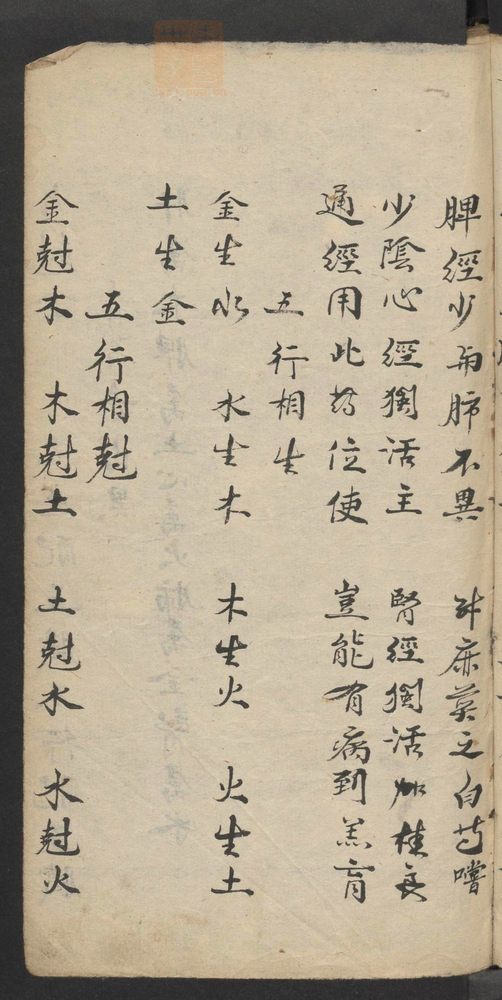 脾經少與肺不異　升麻葉之白芍嚐
少陰心經獨活主　腎經獨活加桂良
通經用此藥位使　豈能有病到羔肓
五行相生
金生水　水生木　木生火　火生土
土生金
五行相尅
金尅木　木尅土　土尅水　水尅火